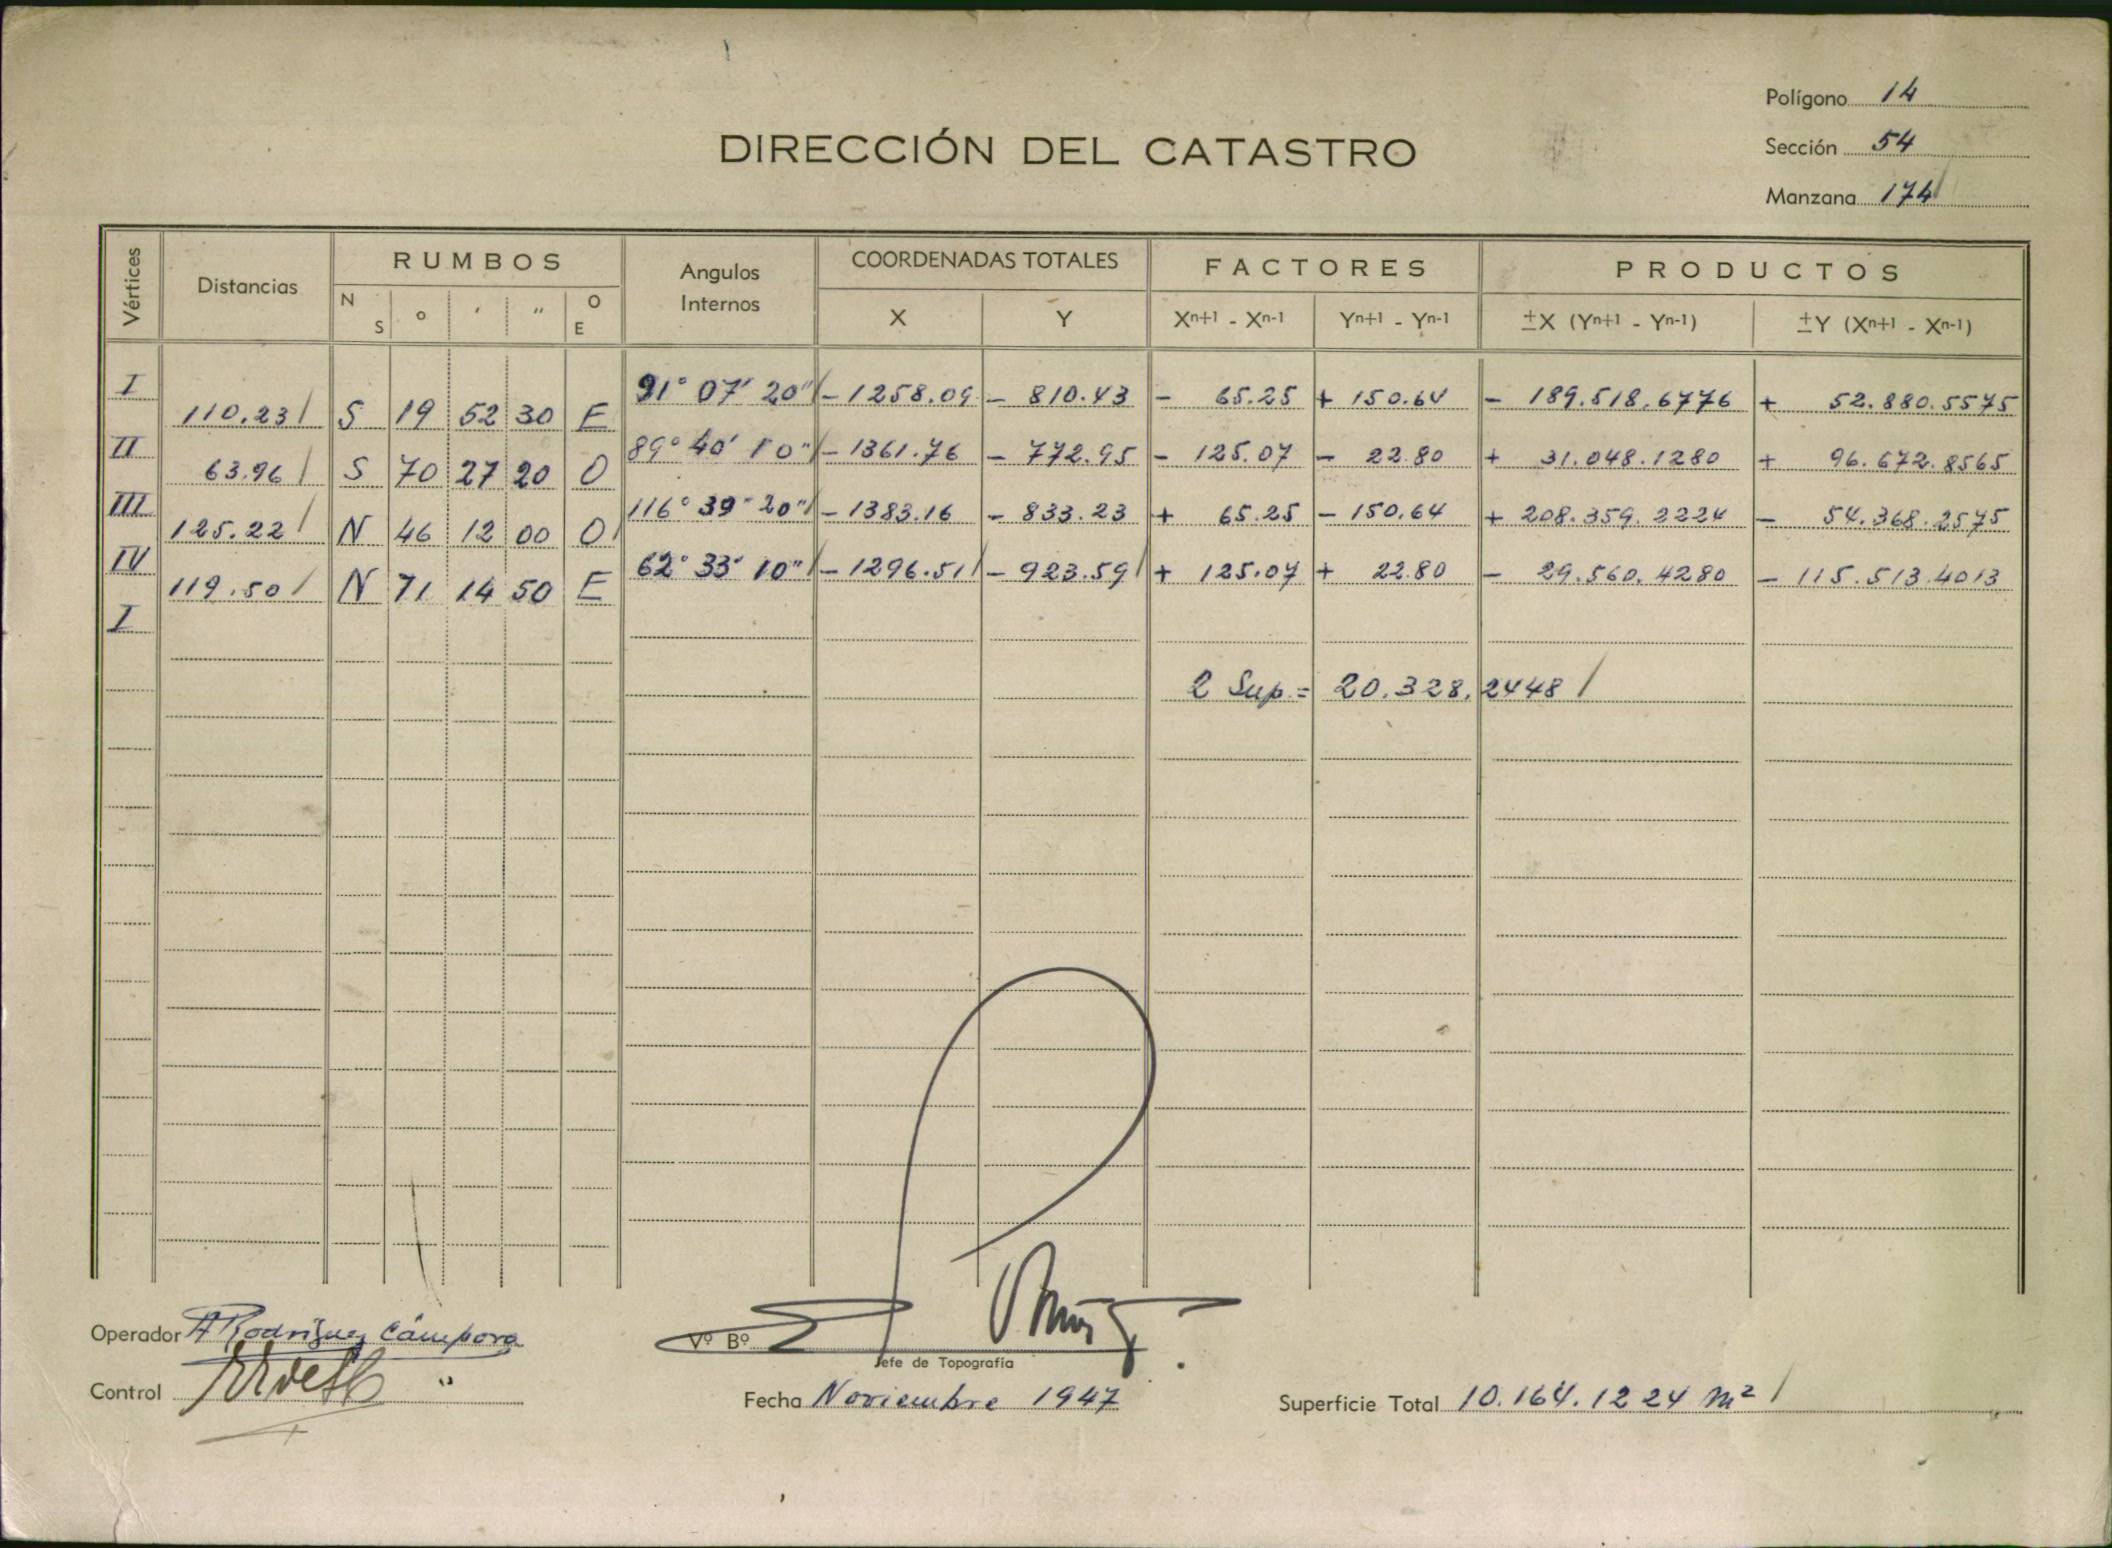 Polígono 14
DIRECCIÓN DEL CATASTRO
Sección 54
Manzana 174
Vértices Distancias RUMBOS Angulos Internos COORDENADAS TOTALES FACTORES PRODUCTOS
N S ° ' " O E X Y Xn+1 - Xn-1 Yn+1 - Yn-1 ±X (Yn+1 - Yn-1) ±Y (Xn+1 - Xn-1)
I 91° 07' 20" - 1258.09 - 810.43 - 65.25 + 150.64 - 189.518.6776 + 52.880.5575
110.23 S 19 52 30 E
II 89° 40' 10" - 1361.76 - 772.95 - 125.07 - 22.80 + 31.048.1280 + 96.672.8565
63.96 S 70 27 20 O
III 116° 39' 20" - 1383.16 - 833.23 + 65.25 - 150.64 + 208.359.2224 - 54.368.2575
125.22 N 46 12 00 O
IV 62° 33' 10" - 1296.51 - 923.59 + 125.07 + 22.80 - 29.560.4280 - 115.513.4013
119.50 N 71 14 50 E
I
2 Sup. = 20.328.2448
Operador A Rodríguez Cámpora
Vº Bº
Jefe de Topografía
Control
Fecha Noviembre 1947
Superficie Total 10.164.1224 m²